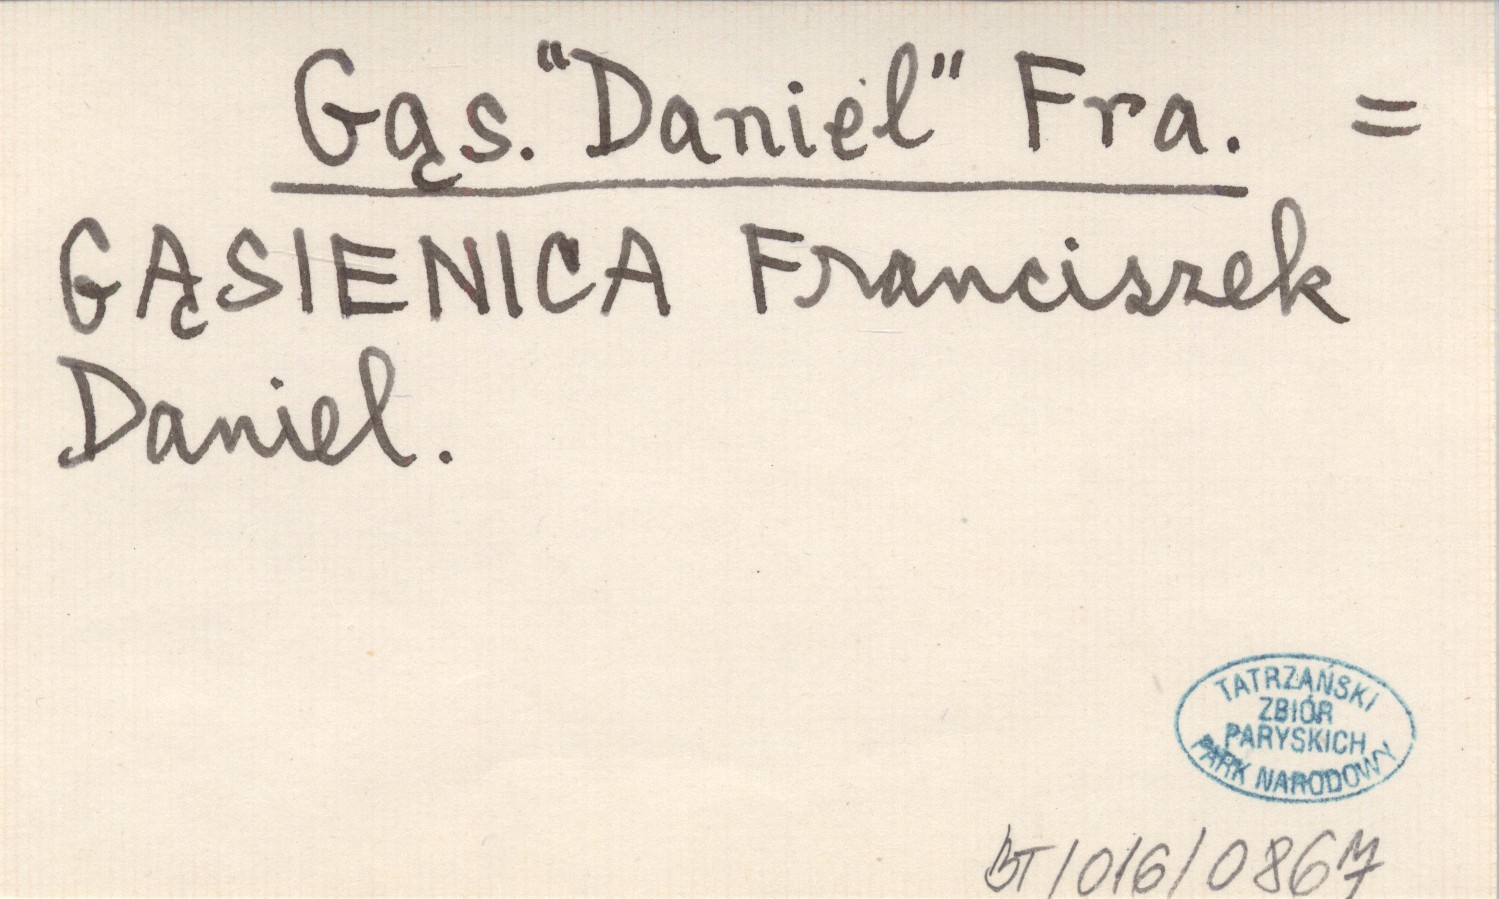 Gąs. "Daniel" Fra. =
GĄSIENICA Franciszek
Daniel.
TATRZAŃSKI
ZBIÓR
PARYSKICH
PARK NARODOWY
BT/016/0867